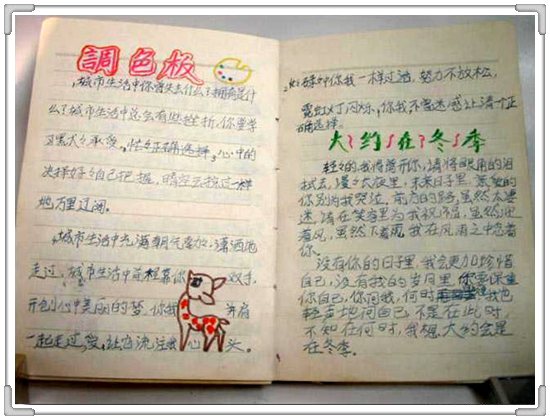 調色板
城市生活中你曾失去什么？拥有是什
么？城市生活中总会有些挫折，你要学
习默默承受，忙忙正确选择，心中的
决择好好自己把握，晴空云披这一样
地万里辽阔。
城市生活中充满朝气参加，潇洒地
走过，城市生活中前程靠你 双手，
开创心中美丽的梦，你我 并肩
一起走过，爱，让暖流注我 心 头。
你我一样过活，努力不放松，
霓虹灯闪烁，你我不要迷惑，认清个正
确选择。
大约在冬季
轻轻的我将离开你，请将眼角的泪
拭去，漫々长夜里，未来日子里，亲爱的
你别为我哭泣，前方的路虽然太凄
迷，请在笑容里为我祝福，虽然迎
着风，虽然下着雨，我在风雨之中念着
你。
没有你的日子里，我会更加珍惜
自己，没有我的岁月里，你要保重
你自己，你问我，何时 我也
轻声地问自己，不是在此时，
不知在何时，我想大约会是
在冬季。